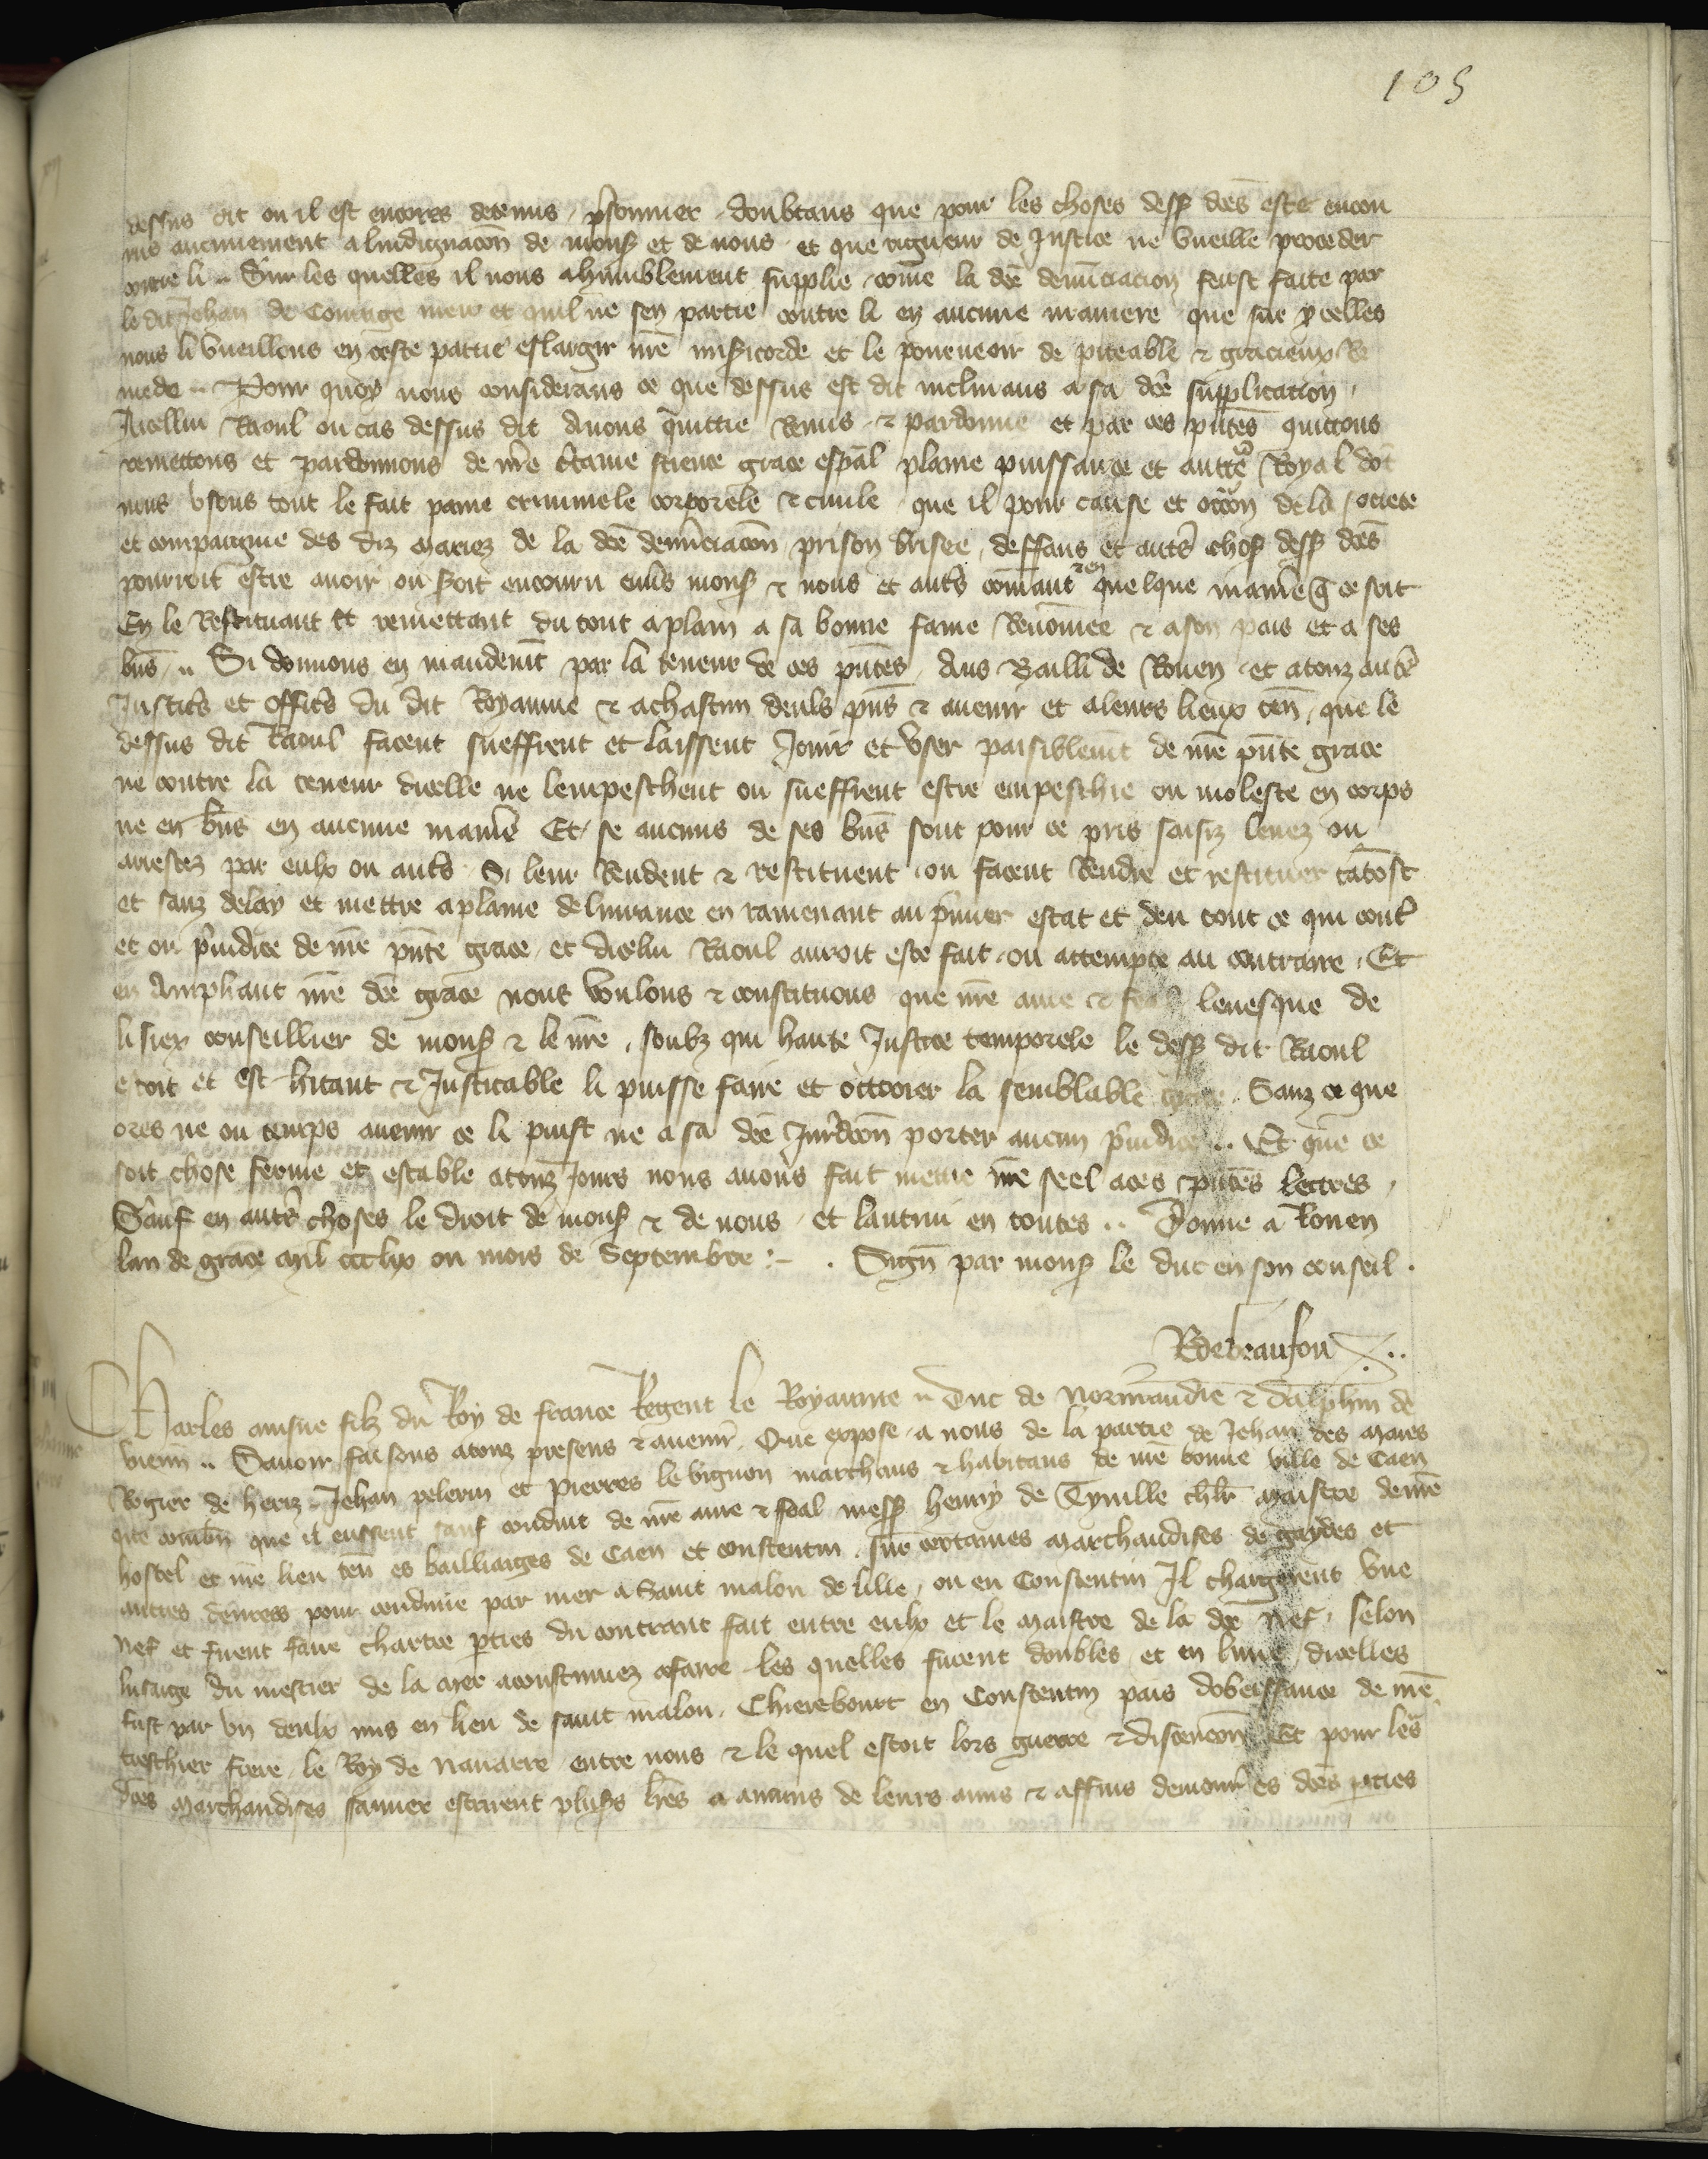 105
dessus dit ou il est encores detenus prisonnier doubtans que pour les choses dess dces este encou
rus aucunement a lindignacon de mons et de nous et que rigueur de Justice ne vueille proceder
contre li .. Sur les quelles il nous a humblement supplie come la dce denunciacion feust faite par
le dit Jehan de Couraige meu et quil ne sen partie contre li en aucune maniere que sur ycelles
nous li vueillons en ceste partie eslargir nre misicorde et le pouueoir de piteable & gracieux Re
mede .. Pour quoy nous considerans ce que dessus est dit inclinans a sa dce supplication
Jcellui Raoul ou cas dessus dit Auons quittie Remis & pardonne et par ces pntes quictons
remettons et pardonnons de nre ctaine science grace espal plaine puissance et auttte Royal dot
nous vsons tout le fait paine criminele corporele & ciuile que il pour cause et occon de la societe
et compaignie des diz mariez de la dce denunciacon prison brisee deffaus et autrs chos dess dces
pourroit estre auoir ou soit encouru enuls mons & nous et autrs comant & en quelque manie q ce soit
En le Restituant et remettant du tout a plain a sa bonne fame Renommee & a son pais et a ses
bns .. Si donnons en mandemt par la teneur de ces pntes Aus Bailli de Rouen et a touz autrs
Justicrs et officrs du dit Royaume & a chascun deuls pns & auenir et a leurs lieux ten que le
dessus dit Raoul facent sueffrent et laissent Jouir et vser paisiblemt de nre pnte grace
ne contre la teneur dicelle ne lempeschent ou sueffrent estre empeschie ou moleste en corps
ne en bns en aucune manie Et se aucuns de ses bns sont pour ce pris saisiz leuez ou
arrestez par eulx ou autrs Si leur Rendent & restituent ou facent Rendre et restituer tatost
et sanz delay et mettre a plaine deliurance en ramenant au pmier estat et deu tout ce qui contr
et ou piudice de nre pnte grace et dicelui Raoul auroit este fait ou attempte au contraire Et
en Ampliant nre dce grace nous voulons & constituons que nre ame & feal leuesque de
lisiex conseillier de mons & le nre soubz qui haute Justice temporele le dess dit Raoul
estoit et est hitant & Justicable li puisse faire et octroier la semblable grace Sanz ce que
ores ne ou temps auenir ce li puist ne a sa dce Jurdicon porter aucun piudice .. Et que ce
soit chose ferme et estable a touz Jours nous auons fait mettre nre seel a ces pntes lettres
Sauf en autrs choses le droit de mons & de nous et lautrui en toutes .. Donne a Rouen
lan de grace mil ccclx ou mois de Septembre :- . Sign par mons le duc en son conseil .
R de beaufou ..
Charles ainsne filz du Roy de france Regent le Royaume .. Duc de Normandie & dalphin de
vienn .. Sauoir faisons a touz presens & auenir Que expose a nous de la partie de Jehan des mares
Rogier de heriz Jehan pelerin et Pierres le bignon marchans & habitans de nre bonne ville de Caen
que combn que il eussent sauf conduit de nre ame & feal mess henry de Tyuille chlr maistre de nre
hostel et nre lieu ten es bailliages de Caen et constentin sur certaines marchandises de guydes et
autres denrees pour conduire par mer a Saint malou de lille ou en Constentin Jl chargerent vne
Nef et firent faire chartre pties du contraut fait entre eulx et le maistre de la dce nef selon
lusaige du mestier de la mer acoustumez a faire les quelles furent doubles et en lune dicelles
fust par vn deulx mis en lieu de saint malou Chierebourt en Constentin pais dobeissance de nre
treschier frere le Roy de Nauarre entre nous & le quel estoit lors guerre & discencon Et pour les
dces marchandises sauuer escrirent plusrs lres a aucuns de leurs amis & affins demour es dces pties